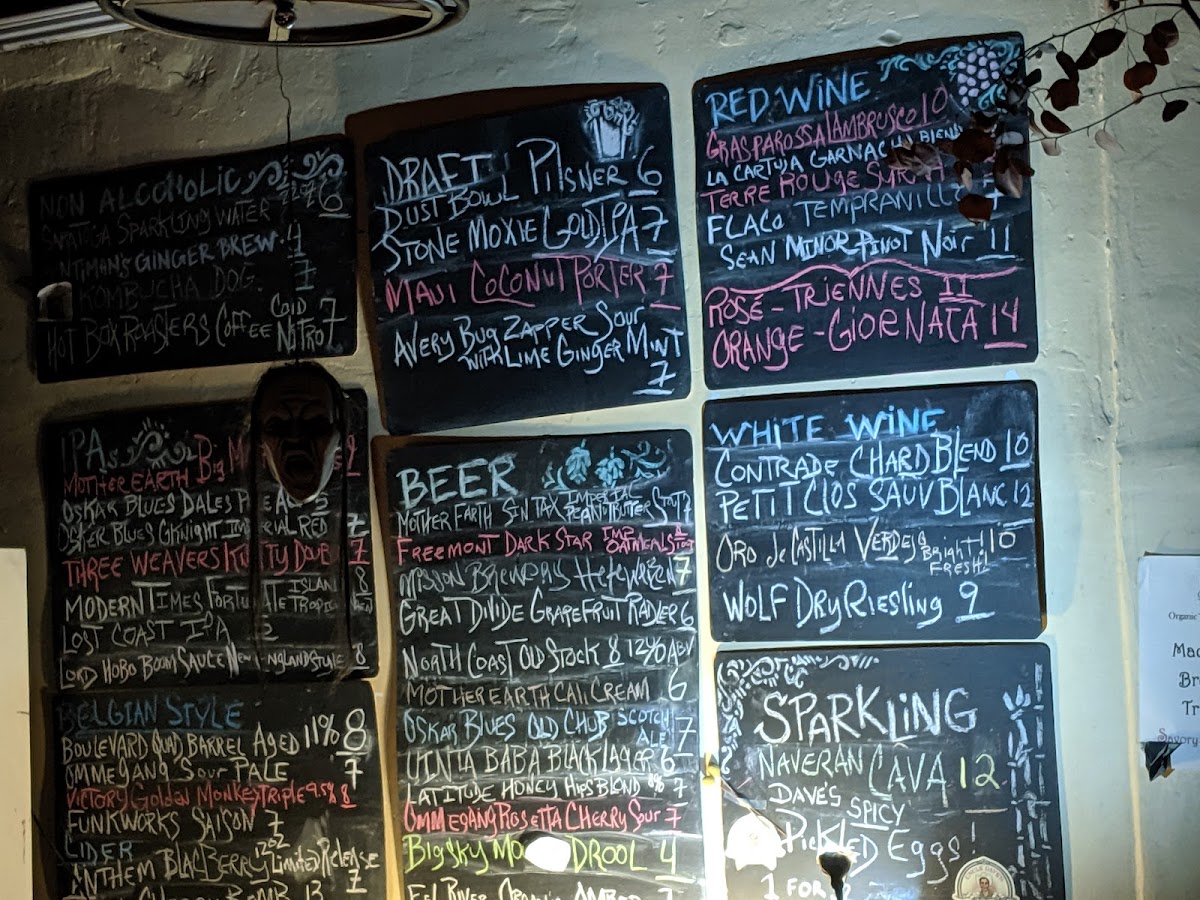 NON ALCOHOLIC
SARATOGA SPARKLING WATER 6
GINGER BREW 4
KOMBUCHA DOG 7
HOT BOX ROASTERS COFFEE COLD NITRO 7
DRAFT
DUST BOWL PILSNER 6
STONE MOXIE GOLD IPA 7
MAUI COCONUT PORTER 7
AVERY BUG ZAPPER SOUR
WITH LIME GINGER MINT
7
RED WINE
GRASPAROSSA LAMBRUSCO 10
LA CARTUJA GARNACHA
TERRE ROUGE
FLACO TEMPRANILLO
SEAN MINOR PINOT NOIR 11
ROSÉ - TRIENNES 11
ORANGE - GIORNATA 14
IPAs
MOTHER EARTH BIG
OSKAR BLUES DALES
OSKAR BLUES G'KNIGHT RED 7
THREE WEAVERS 7
MODERN TIMES ISLAND 8
LOST COAST IPA
LORD HOBO BOOM SAUCE NEW ENGLAND STYLE 8
BEER
MOTHER EARTH SIN TAX IMPERIAL PEANUTBUTTER STOUT 7
FREEMONT DARK STAR IMP OATMEAL STOUT 8
MISSION BREWERY HEFEWEIZEN 7
GREAT DIVIDE GRAPEFRUIT RADLER 6
NORTH COAST OLD STOCK 8 12% ABV
MOTHER EARTH CALI CREAM 6
OSKAR BLUES OLD CHUB SCOTCH ALE 7
UINTA BABA BLACK LAGER 6
LATITUDE HONEY HIPS BLOND 8% 7
OMMEGANG ROSETTA CHERRY SOUR 7
BIG SKY DROOL 4
EEL RIVER ORGANIC AMBER 7
WHITE WINE
CONTRADE CHARD BLEND 10
PETIT CLOS SAUV BLANC 12
ORO de CASTILLA VERDEJO Bright! FRESH! 10
WOLF DRY RIESLING 9
BELGIAN STYLE
BOULEVARD QUAD BARREL AGED 11% 8
OMMEGANG SOUR PALE 7
VICTORY GOLDEN MONKEY TRIPLE 9.5% 8
FUNKWORKS SAISON 7
CIDER
ANTHEM BLACBERRY 12OZ LIMITED RELEASE
7
CHERRY BOMB 13
SPARKLING
NAVERAN CAVA 12
DAVE'S SPICY
PICKLED EGGS!
1 FOR 2
Organic
Mac
Br
Tr
Savory